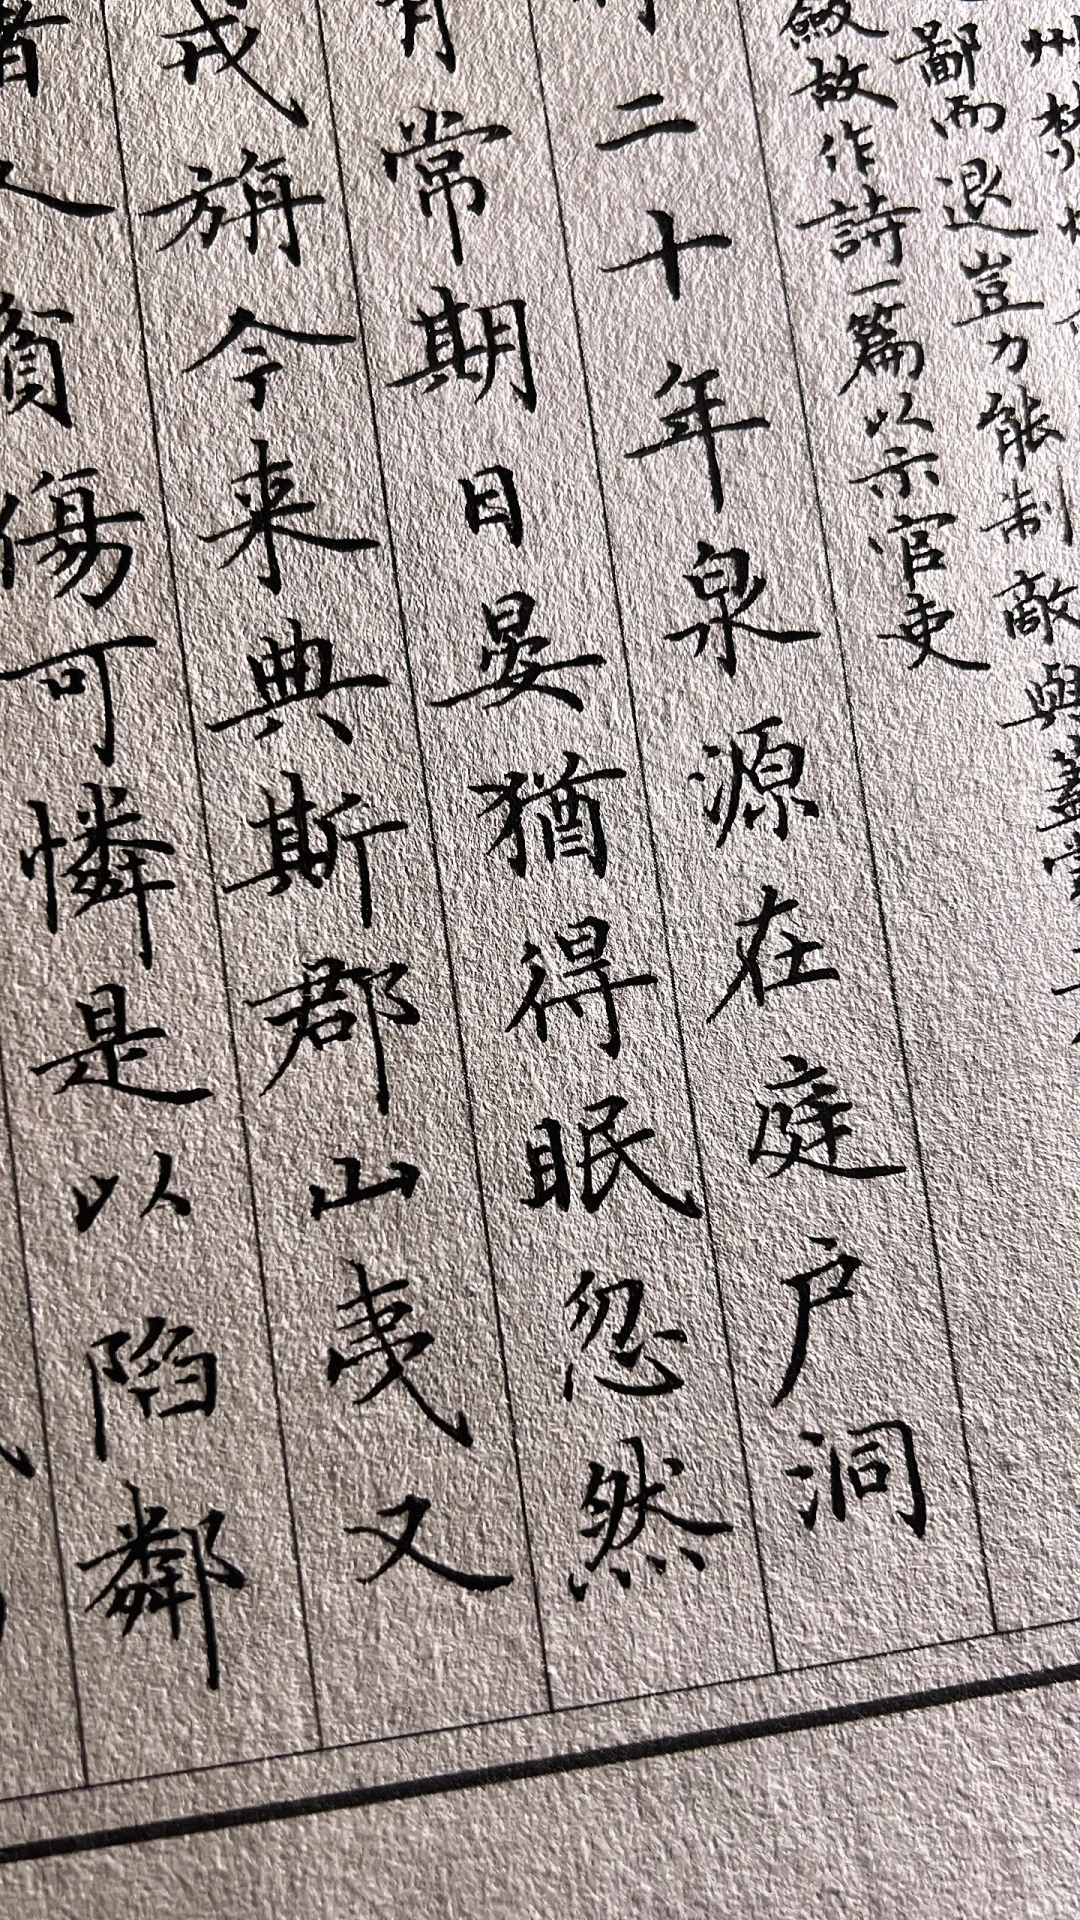 州焚
鄙而退豈力能制敵與蓋蒙
斂故作詩一篇以示官吏
二十年泉源在庭户洞
有常期日晏猶得眠忽然
戎旃今来典斯郡山夷又
人貧傷可憐是以陷鄰